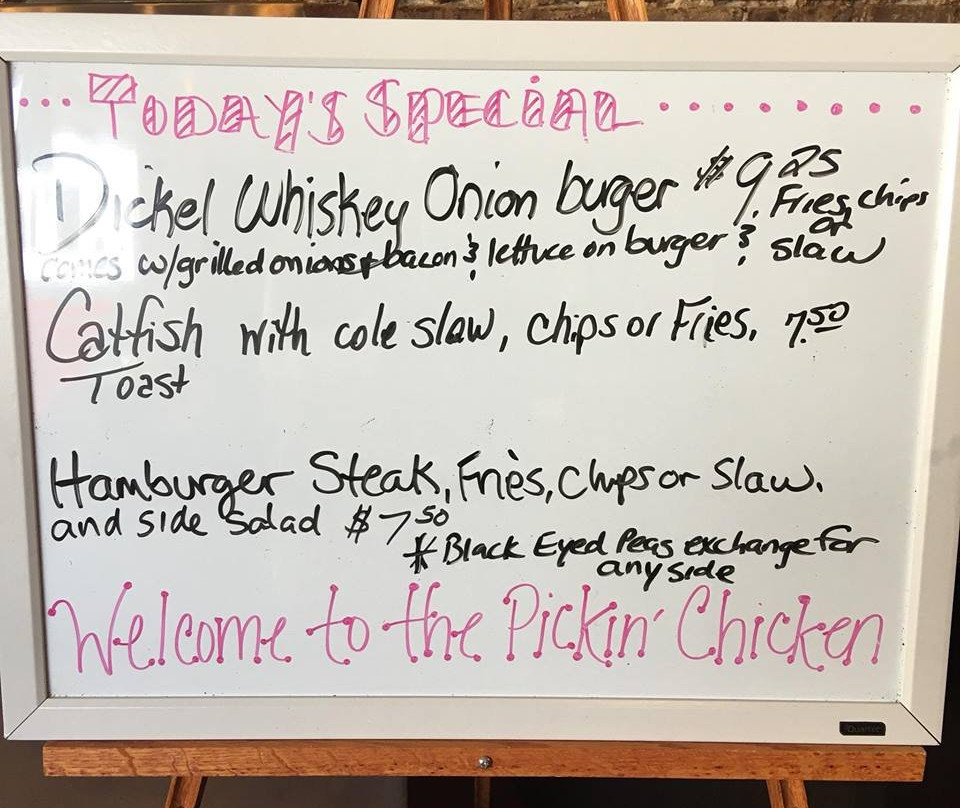 ... TODAY'S SPECIAL ........
Dickel Whiskey Onion burger $9.25
Fries, chips
or
comes w/grilled onions & bacon & lettuce on burger & slaw
Catfish with cole slaw, chips or Fries. 7.50
Toast
Hamburger Steak, Fries, Chips or Slaw.
and side Salad $7.50
* Black Eyed Peas exchange for
any side
Welcome to the Pickin' Chicken
Quartet